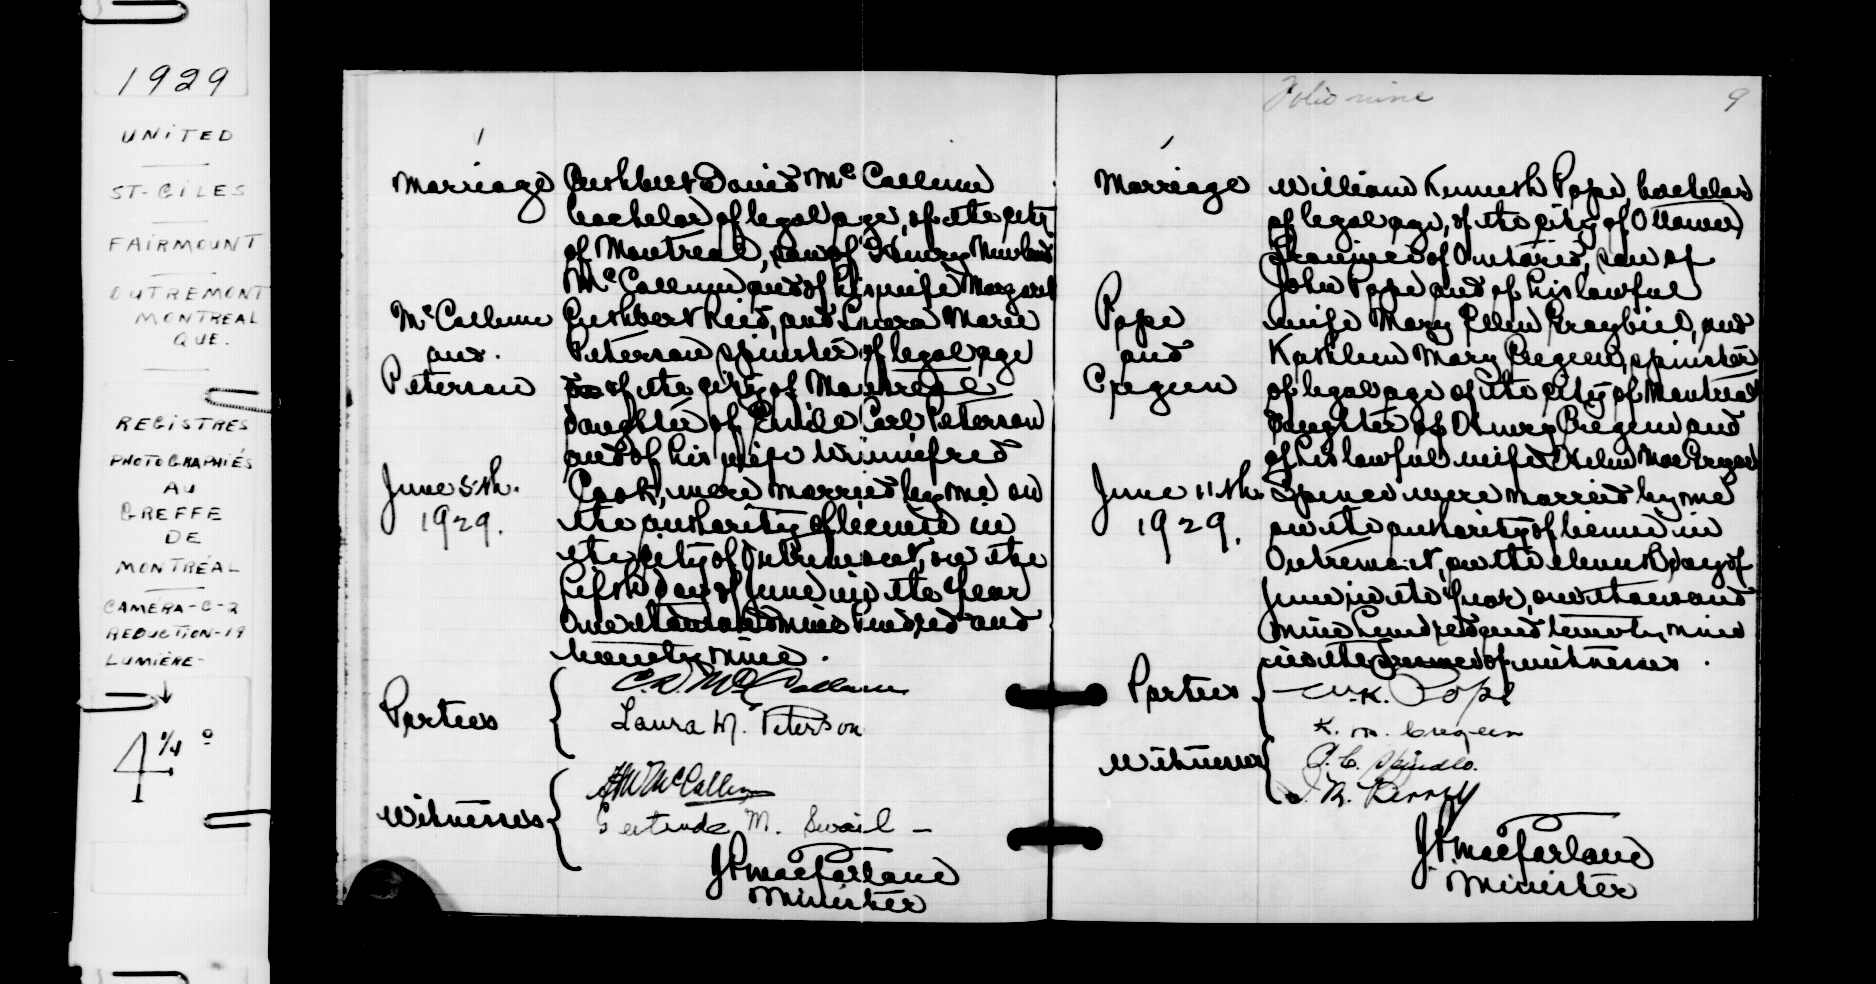 1929
UNITED
ST-GILES
FAIRMOUNT
OUTREMONT
MONTREAL
QUE.
REGISTRES
PHOTOGRAPHIÉS
AU
GREFFE
DE
MONTRÉAL
CAMÉRA-C-2
RÉDUCTION-19
LUMIÈRE-
4 1/4 º
Marriage
McCallum
and
Peterson
June 5th.
1929.
Cuthbert David McCallum
bachelor of legal age, of the city
of Montreal, son of Henry
McCallum and of his wife Margaret
Cuthbert Reid, and Laura Marie
Peterson spinster of legal age
of the city of Montreal
daughter of Emile Carl Peterson
and of his wife Winnifred
Cook, were married by me on
the authority of license in
the city of Outremont, on the
fifth day of June in the year
One thousand nine hundred and
twenty nine.
Parties
C.D. McCallum
Laura M. Peterson
Witnesses
HW McCallum
Gertrude M. Swail -
J.P. MacFarlane
Minister
Folio nine 9
Marriage
Pope
and
Cregeen
June 11th.
1929.
William Kenneth Pope, bachelor
of legal age, of the city of Ottawa
Province of Ontario, son of
John Pope and of his lawful
wife Mary Ellen Graybiel, and
Kathleen Mary Cregeen, spinster
of legal age of the city of Montreal
daughter of Henry Cregeen and
of his lawful wife Helen MacGregor
Spence were married by me
on the authority of license in
Outremont, on the eleventh day of
June in the year, one thousand
nine hundred and twenty nine
in the presence of witnesses.
Parties
W.K. Pope
K. M. Cregeen
Witnesses
J.P. MacFarlane
Minister